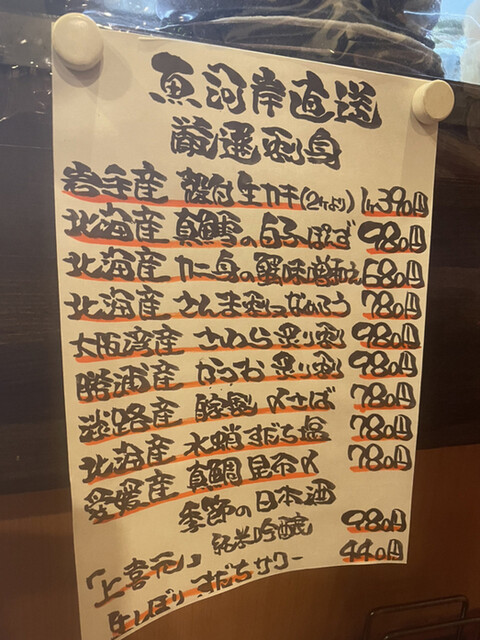 魚河岸直送
厳選刺身
岩手産 殻付生カキ(2ケより) 1ヶ390円
北海産 真鱈の白子ぽんず 980円
北海産 カニ身の蟹味噌和え 680円
北海産 さんま刺 なめろう 780円
大阪湾産 さわら炙り刺 980円
勝浦産 かつお 炙り刺 980円
淡路産 自家製 〆さば 780円
北海産 水蛸すだち塩 780円
愛媛産 真鯛昆布〆 780円
季節の日本酒
純米吟醸
「上喜元」 980円
生しぼりすだちサワー 440円